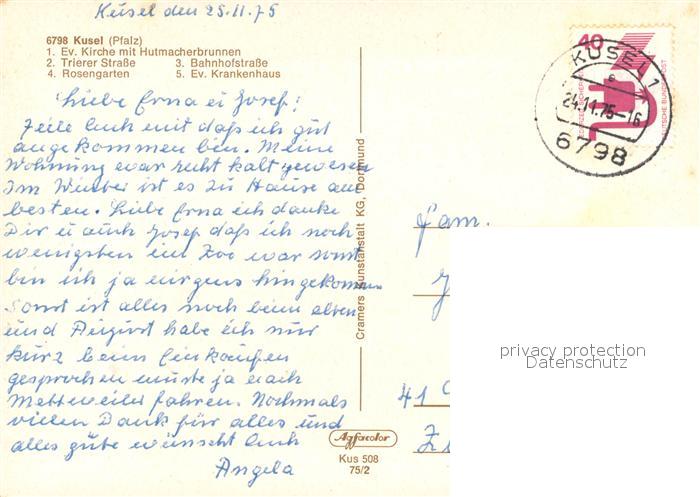 Kusel den 25.11.75
6798 Kusel (Pfalz)
1. Ev. Kirche mit Hutmacherbrunnen
2. Trierer Straße 3. Bahnhofstraße
4. Rosengarten 5. Ev. Krankenhaus
Liebe Erna u Josef!
Teile Euch mit daß ich gut
angekommen bin. Meine
Wohnung war recht kalt gewesen
Im Winter ist es zu Hause am
besten. Liebe Erna ich danke
Dir u auch Josef daß ich noch
wenigsten im Zoo war sonst
bin ich ja nirgens hingekommen
Sonst ist alles noch beim alten
und August habe ich nur
kurz beim Einkaufen
gesprochen muste ja nach
Mettweiler fahren. Nochmals
vielen Dank für alles und
alles gute wünscht Euch
Angela
Cramers Kunstanstalt KG, Dortmund
Agfacolor
Kus 508
75/2
40
DEUTSCHE BUNDESPOST
KUSEL 1
e
24.11.75-16
6798
Fam.
41
privacy protection
Datenschutz